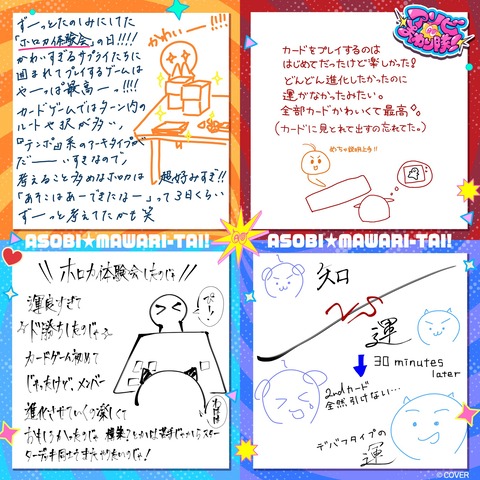 ずーっとたのしみにしてた
「ホロカ体験会」の日!!!!
かわいすぎるサプライたちに
囲まれてプレイするゲームは
やーっぱ最高ー!!!!
カードゲームではターン内の
ルートや択が多い、
だーーいすきなので
考えること多めなホロカは 超好みすぎ!!
「あそこはあーできたなー」って3日くらい
ずーっと考えてたかも笑
かわいー!!!!
アソビ★まわり隊!
カードをプレイするのは
はじめてだったけど楽しかった!
どんどん進化したかったのに
運がなかったみたい。
全部カードかわいくて最高◇。
(カードに見とれて出すの忘れてた。)
めちゃ説明上手!!
ASOBI★MAWARI-TAI!
ASOBI★MAWARI-TAI!
\\ホロカ体験会したのじゃ//
運良すぎて
ド勝ちしたのじゃ
カードゲーム初めて
じゃったけど、メンバー
進化させていくの楽しくて
おもしろかったのじゃ!
ターデッキ同士でまたやりたいのじゃ!
知
VS
運
30 minutes
later
2ndカード
全然引けない…
デバフタイプの
運
© COVER